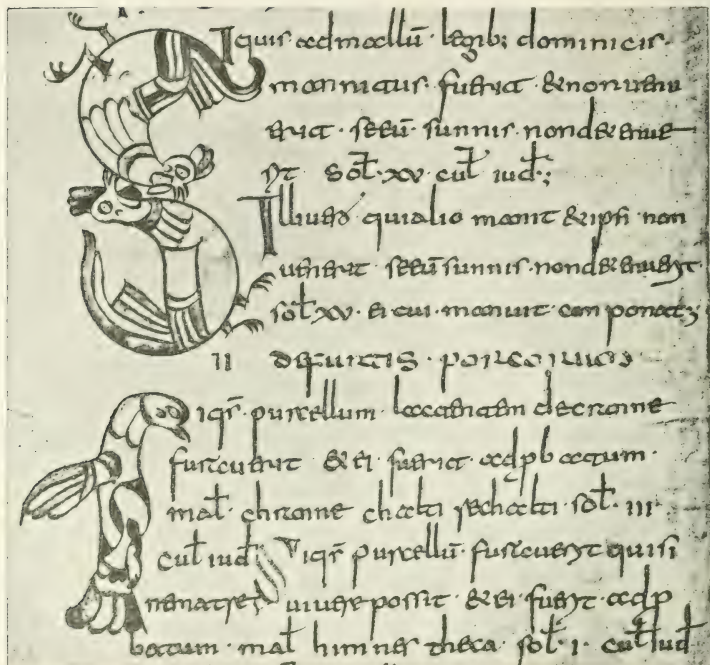 Siquis admallū · legib; dominicis ·
mannitus · fuerit · & non uen
erit · seū · sunnis · non detenue
rit sol̄ · xv · cul̄ iud̄ · ;
Ille uero qui alio manit & ipsi non
uenerit seū sunnis · non detenuerit ·
sol̄ xv · ei cui · manuit conponat;
II de furtis · porcorum
Siqs̄ purcellum · lactantem decranne
furauerit & ei fuerit · adpbatum ·
mal̄ · chranne chalti rechalti · sol̄ · III
cul̄ iud̄ Siqs̄ purcellū furauerit qui si
ne matre uiuere possit & ei fuerit · adp
batum · mal̄ himnes theca · sol̄ · I · cul̄ iud̄